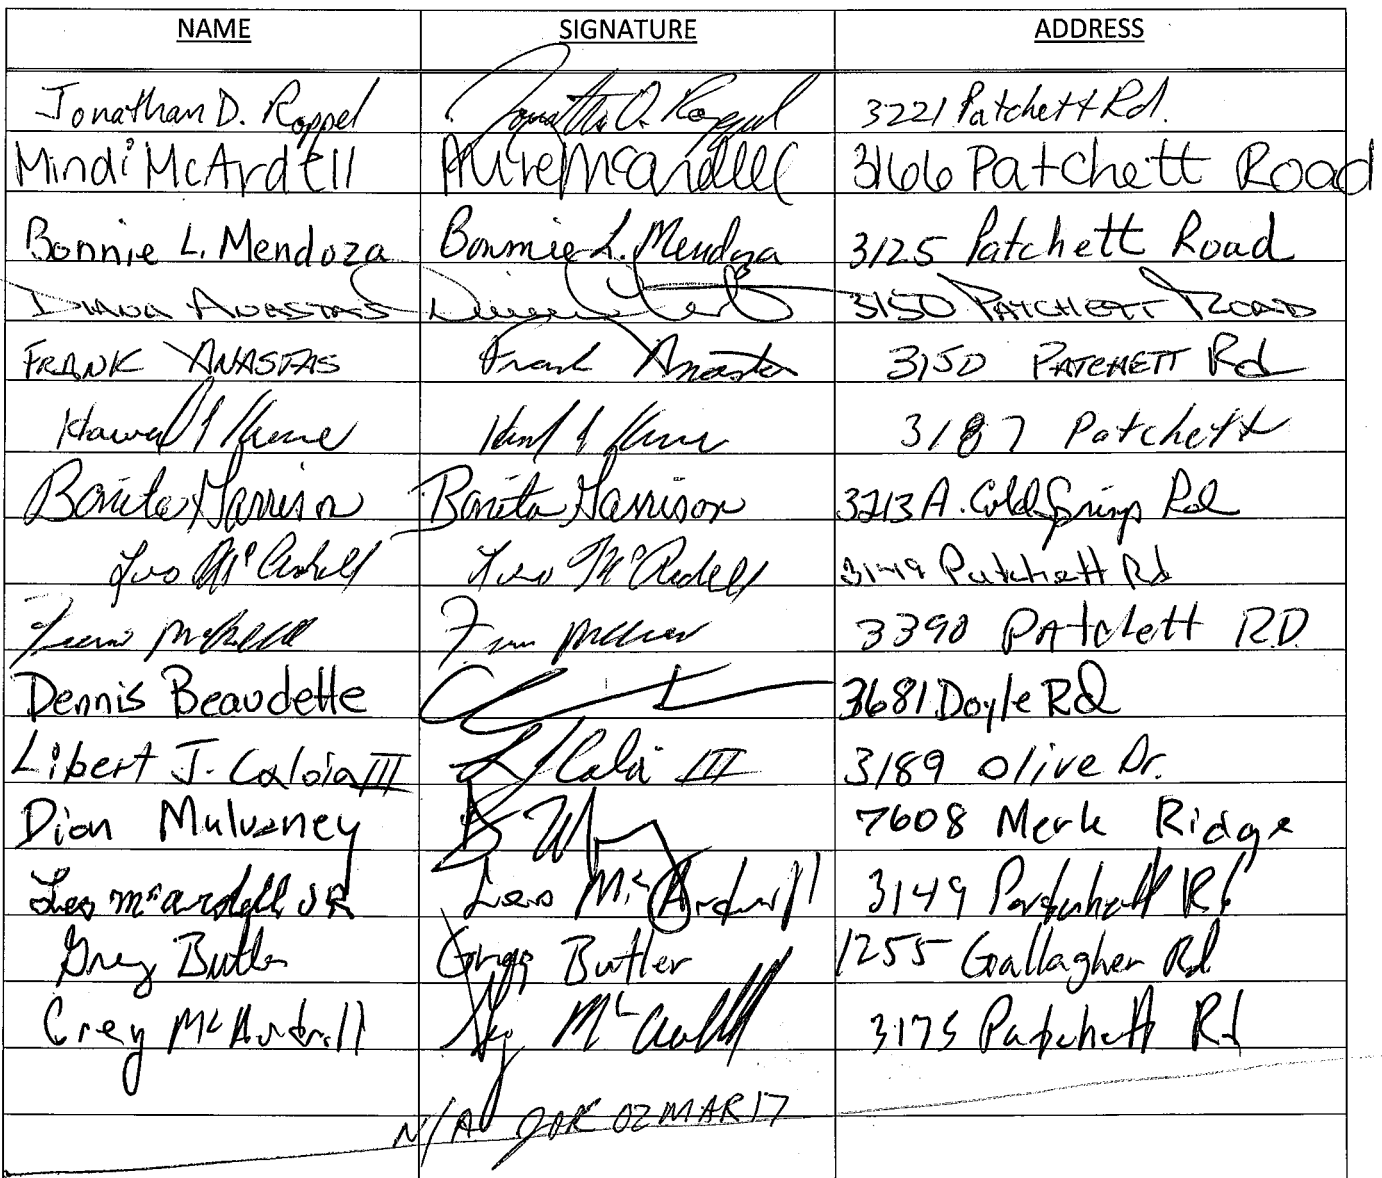 NAME SIGNATURE ADDRESS
Jonathan D. Roppel Jonathan D. Roppel 3221 Patchett Rd.
Mindi McArdell McArdell 3166 Patchett Road
Bonnie L. Mendoza Bonnie L. Mendoza 3125 Patchett Road
Diana Anastas 3150 PATCHETT ROAD
FRANK ANASTAS Frank Anastas 3150 PATCHETT Rd
3187 Patchett
Bonita Garrison Bonita Garrison 3213 A. Cold Springs Rd
Leo McArdell Leo McArdell 3149 Patchett Rd
3390 PAtchett RD.
Dennis Beaudette 3681 Doyle Rd
Libert J. Caloia III III 3189 Olive Dr.
Dion Mulvaney 7608 Merk Ridge
Leo McArdell JR Leo McArdell 3149 Patchett Rd
Greg Butler Gregg Butler 1255 Gallagher Rd
Greg McArdell McArdell 3175 Patchett Rd
N/A JDR 02 MAR 17